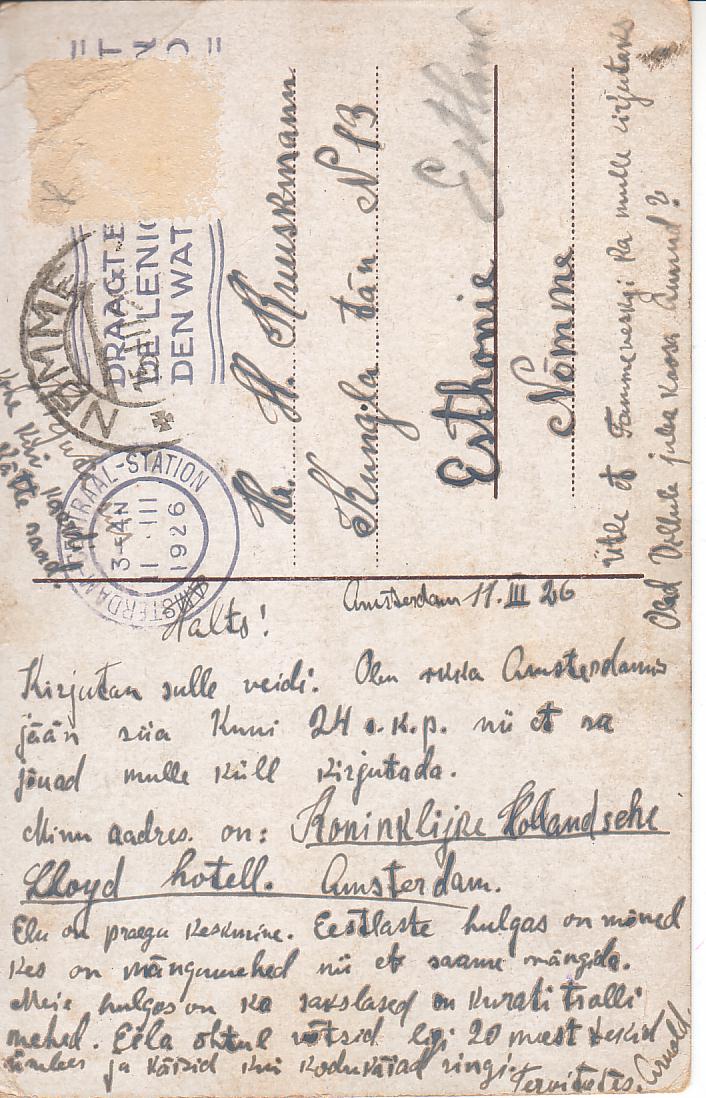 DRAAGT E
DE LENIG
DEN WAT
NÕMME
AMSTERDAM CENTRAAL-STATION
3-4 N
11 III
1926
Hr. H. Kruuskmann
Kungla tän N 13
Esthonie
Nõmme
Ütle et Tammevergi ka mulle kirjutaks
Oled Villule juba kaasa annud?
Kohe kiri
kätte saad.
Amsterdam 11. III 26
Halts!
Kirjutan sulle veidi. Olen Amsterdamis
jään siia kuni 24 s.k.p. nii et sa
jõuad mulle küll kirjutada.
Minu aadres. on: Koninklijke Hollandsche
Lloyd hotell. Amsterdam.
Elu on praegu keskmine. Eestlaste hulgas on mõned
kes on mängumehed nii et saame mängida.
Meie hulgas on ka sakslased on kurati tralli
mehed. Eila õhtul võtsid ligi 20 meest tekid
ümber ja käisid kui kodukäiad ringi.
Tervitades. Arnold.